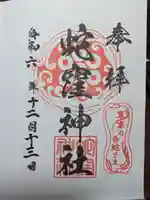 奉拝
蛇窪神社
令和六年十二月十三日